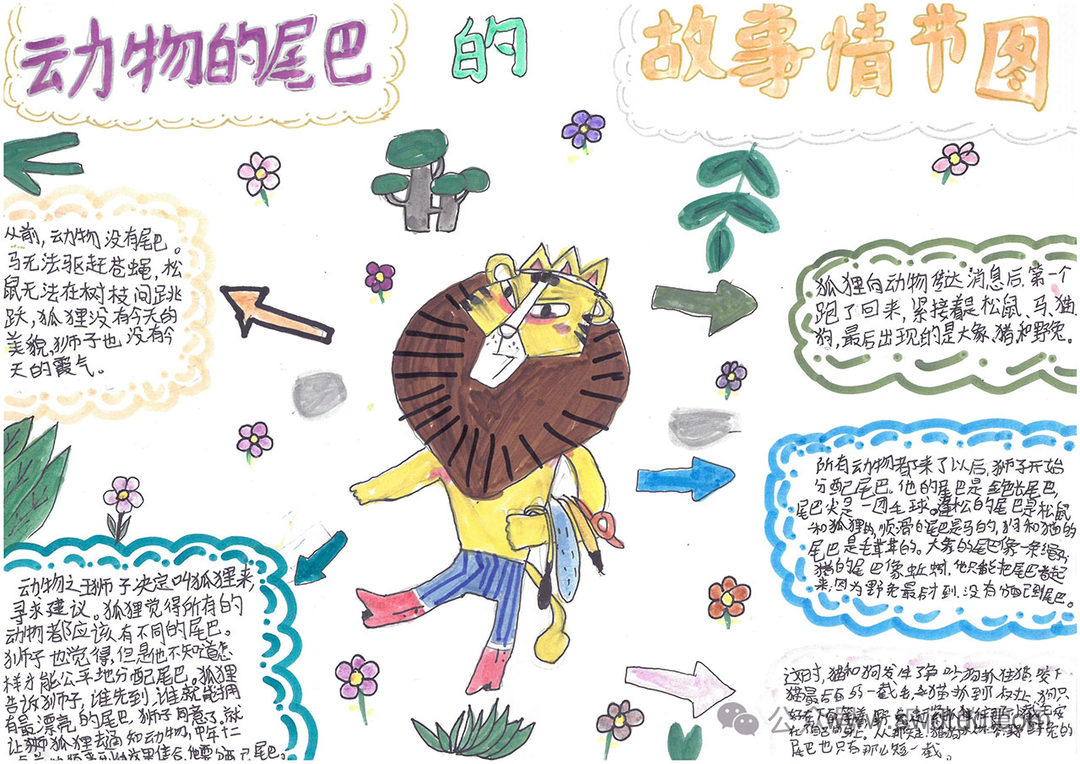 动物的尾巴
的
故事情节图
从前,动物没有尾巴。
马无法驱赶苍蝇,松
鼠无法在树枝间跳
跃,狐狸没有今天的
美貌,狮子也没有今
天的霸气。
动物之王狮子决定叫狐狸来,
寻求建议。狐狸觉得所有的
动物都应该有不同的尾巴。
狮子也觉得,但是他不知道怎
样才能公平地分配尾巴。狐狸
告诉狮子,谁先到,谁就能拥
有最漂亮的尾巴。狮子同意了,就
让狐狸去通知动物,中午仁
狐狸向动物传达消息后,第一个
跑了回来,紧接着是松鼠、马、猫、
狗,最后出现的是大象、猪和野兔。
所有动物都来了以后,狮子开始
分配尾巴。他的尾巴是金色长尾巴,
尾巴尖是一团毛球。蓬松的尾巴是松鼠
和狐狸的,顺滑的尾巴是马的,狗和猫的
尾巴是毛茸茸的。大象的尾巴像一条
猪的尾巴像蚯蚓,他只能把尾巴卷起
来,因为野兔最后到,没有分配到尾巴。
这时,猫和狗发生了争吵,狗抓住猫,咬下
尾巴也只有那么短一截。